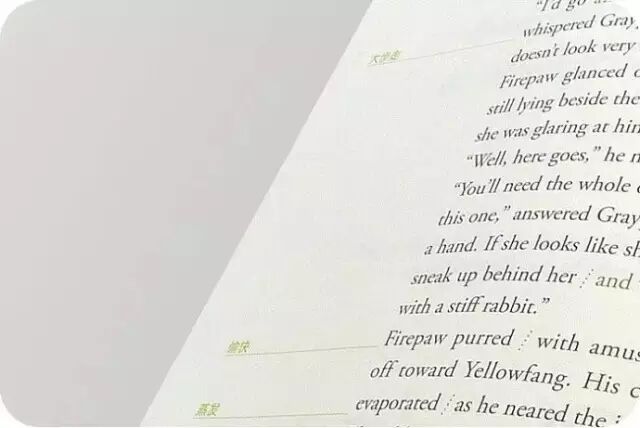 "I'd go
whispered Gray
doesn't look very
大步走
Firepaw glanced
still lying beside the
she was glaring at him
"Well, here goes," he
"You'll need the whole
this one," answered Gray
a hand. If she looks like
sneak up behind her and
with a stiff rabbit."
愉快
Firepaw purred with
off toward Yellowfang. His
蒸发
evaporated as he neared the